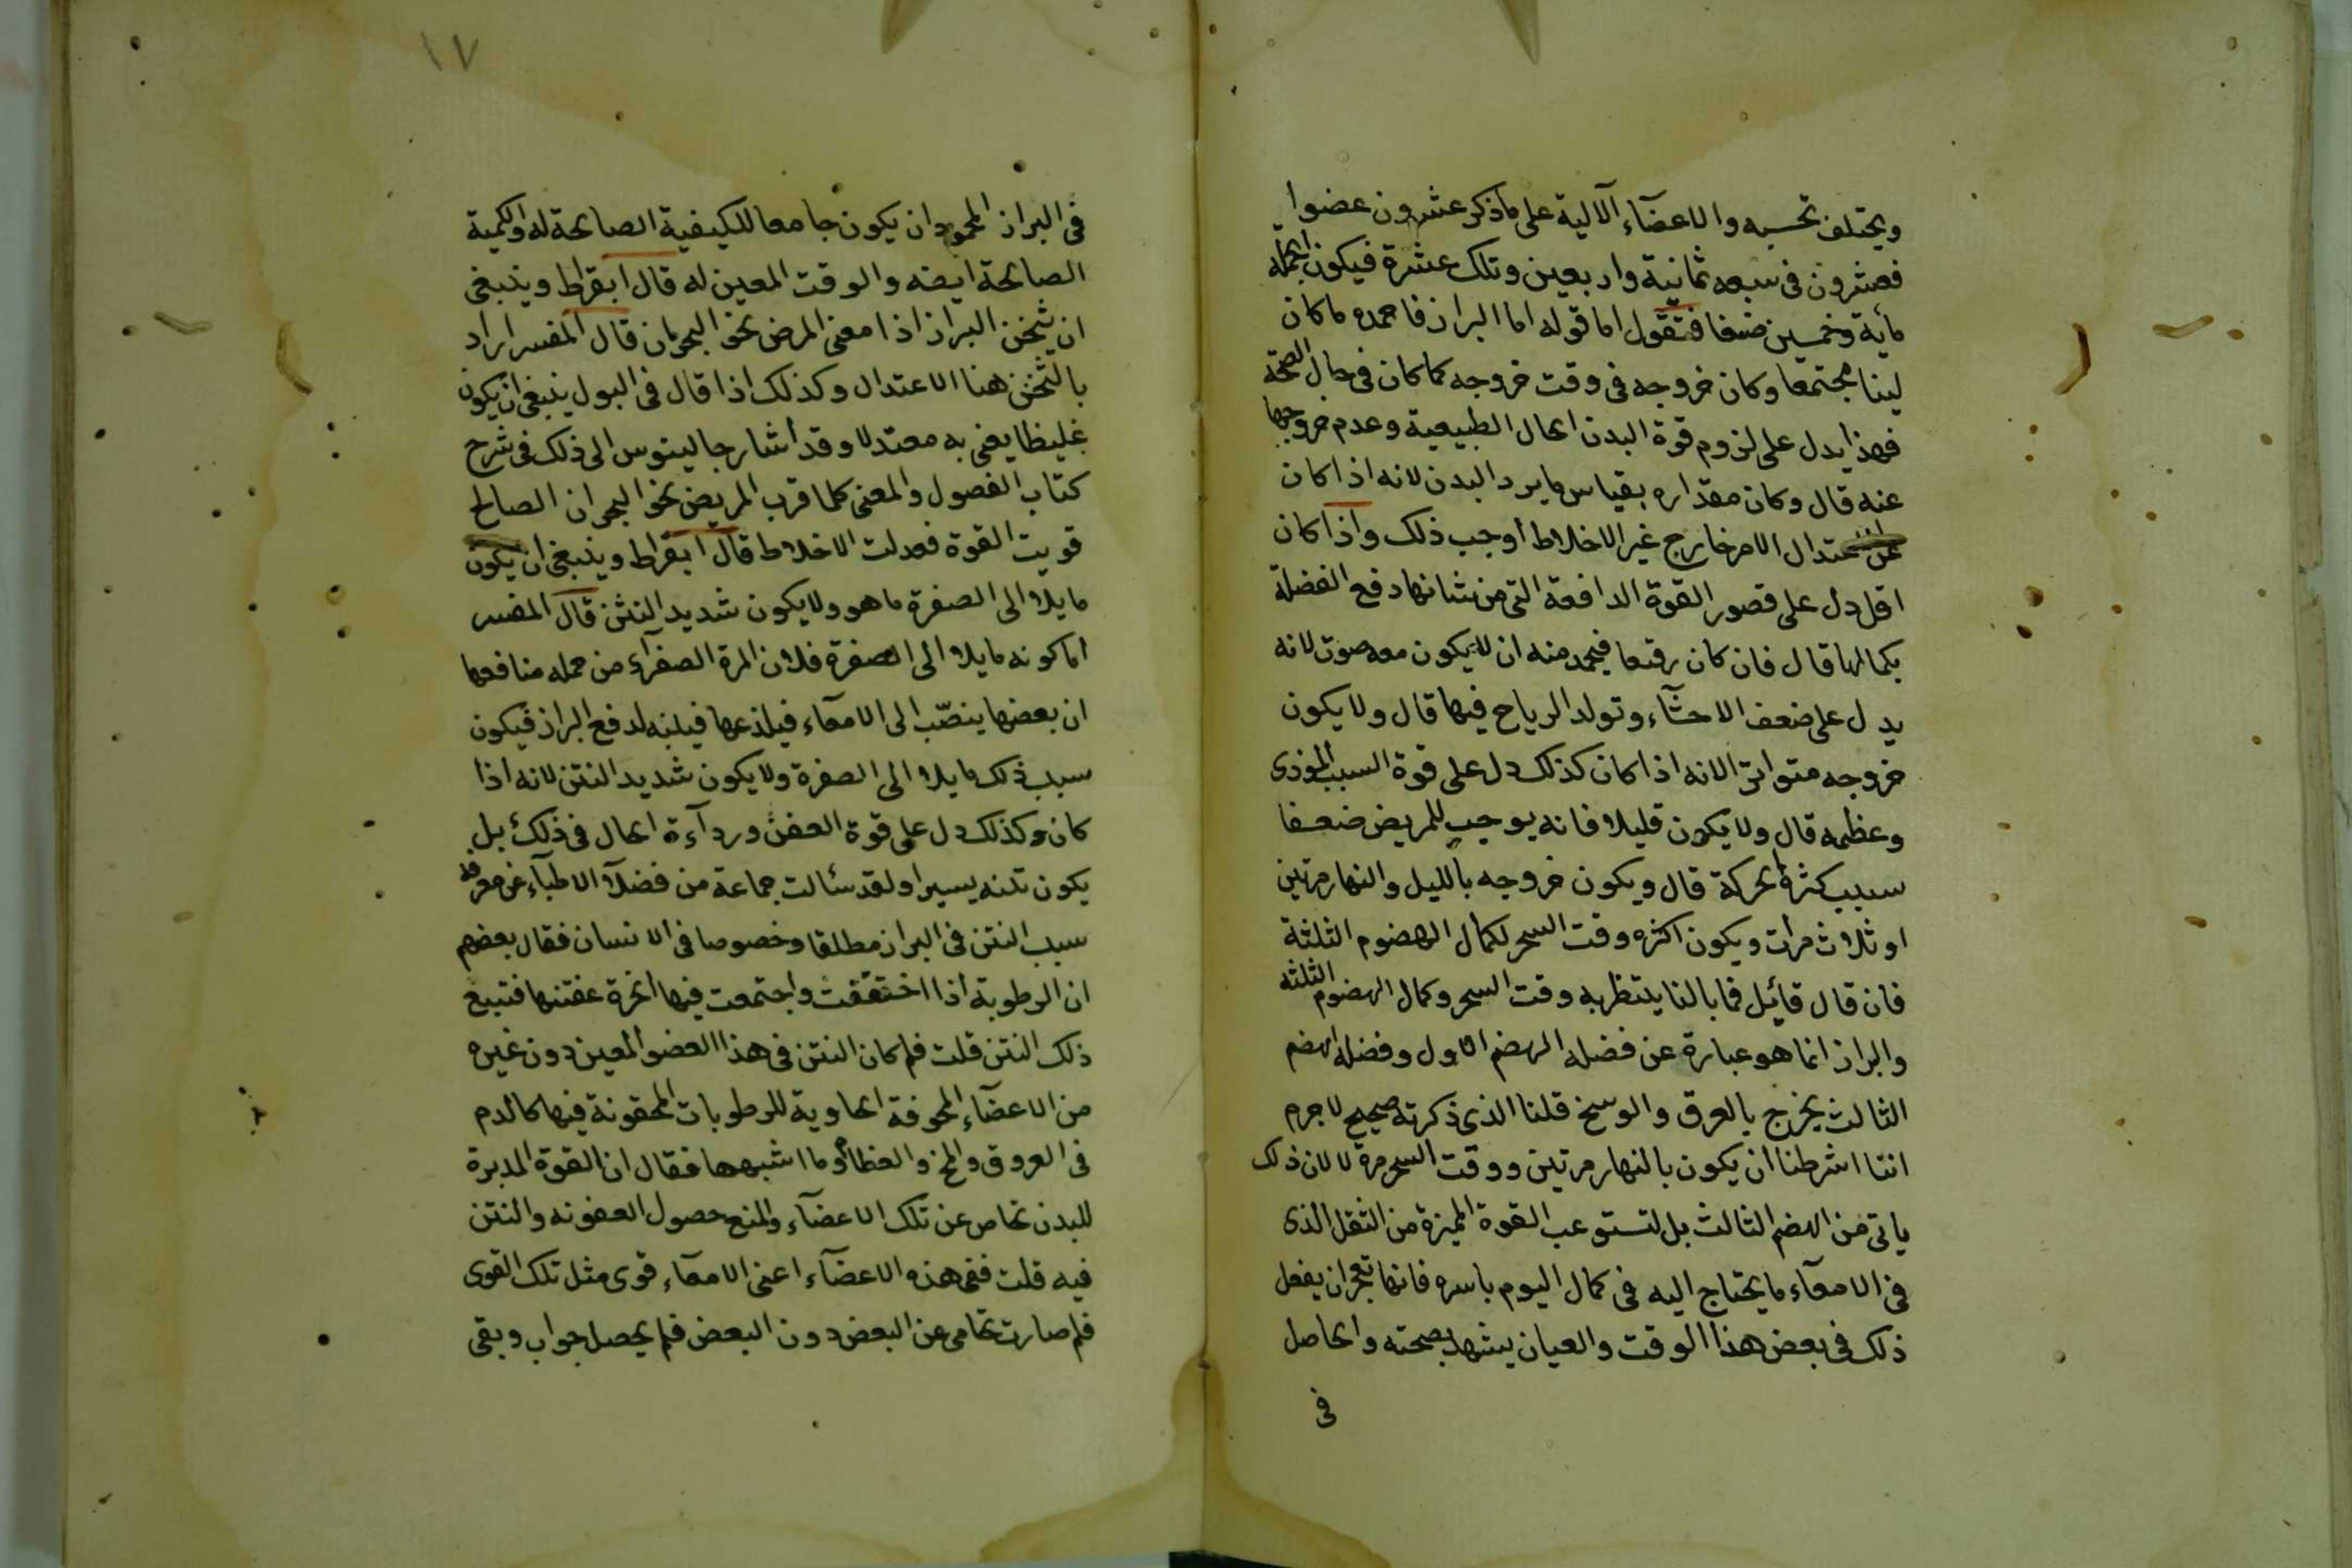 ويختلف تحسبه والاعضآء الآلية على ماذكر عشرون عضوا
فعشرون فى سبعه ثمانية واربعين وتلك عشرة فيكون الجملة
مأية وخمسين ضعفا فنقول اما قوله اما البراز فاحمده ما كان
لينا مجتمعا وكان خروجه فى وقت خروجه كما كان فى حال الصحة
فهذا يدل على لزوم قوة البدن الحال الطبيعية وعدم خروجها
عنه قال وكان مقداره بقياس ما يرد البدن لانه اذا كان
عن اعتدال الامر خارج غير الاخلاط أوجب ذلك واذا كان
اقل دل على قصور القوة الدافعة التى من شانها دفع الفضلة
بكمالها قال فان كان رقيعا فيحمد منه ان لا يكون معه صوت لانه
يدل على ضعف الاحشآء وتولد الرياح فيها قال ولا يكون
خروجه متواترا لانه اذا كان كذلك دل على قوة السبب الموذى
وعظمه قال ولا يكون قليلا فانه يوجب للمريض ضعفا
سبب كثرة الحركة قال ويكون خروجه بالليل والنهار مرتين
او ثلاث مرات ويكون اكثره وقت السحر لكمال الهضوم الثلثة
فان قال قائل فما بالنا ينتظر به وقت السحر وكمال الهضوم الثلثه
والبراز انما هو عبارة عن فضلة الهضم الاول وفضلة الهضم
الثالث يخرج بالعرق والوسخ قلنا الذى ذكرته صحيح لاجرم
اننا اشرطنا ان يكون بالنهار مرتين ووقت السحر مرة لا لان ذلك
ياتى من الهضم الثالث بل لتستوعب القوة المميزة من الثقل الذى
فى الامعآء ما يحتاج اليه فى كمال اليوم باسره فانها تعجز ان يفعل
ذلك فى بعض هذا الوقت والعيان يشهد بصحته والحاصل
فى
١٧
فى البراز المحمود ان يكون جامعا للكيفية الصالحة له والكمية
الصالحة ايضه والوقت المعين له قال ابقراط وينبغى
ان يثخن البراز اذا امعنى المرض نحو البحران قال المفسر اراد
بالثخن هنا الاعتدال وكذلك اذا قال فى البول ينبغى ان يكون
غليظا يعنى به معتدلا وقد أشار جالينوس الى ذلك فى شرح
كتاب الفصول والمعنى كلما قرب المريض نحو البحران الصالح
قويت القوة فعدلت الاخلاط قال ابقراط وينبغى ان يكون
مايلا الى الصفرة ما هو ولا يكون شديد النتن قال المفسر
اما كونه مايلا الى الصفرة فلان المرة الصفرآء من جمله منافعها
ان بعضها ينصّب الى الامعآء فيلذعها فينبه لدفع البراز فيكون
سبب ذلك مايلا الى الصفرة ولا يكون شديد النتن لانه اذا
كان وكذلك دل على قوة العفن وردآءة الحال فى ذلك بل
يكون نتنه يسيرا ولقد سئالت جماعة من فضلآ الاطبآء عن معرفة
سبب النتن فى البراز مطلقا وخصوصا فى الانسان فقال بعضهم
ان الرطوبة اذا اختقفت واجتمعت فيها ابخرة عفنتها فتبيع
ذلك النتن قلت فلم كان النتن فى هذا العضو المعين دون غيره
من الاعضآء المجوفة الحاوية للرطوبات المحقونة فيها كالدم
فى العروق والمخ والعظام وما اشبهها فقال ان القوة المدبرة
للبدن تحاص عن تلك الاعضآء والمنع حصول العفونه والنتن
فيه قلت ففى هذه الاعضآء اعنى الامعآء قوى مثل تلك القوى
فلم صارت تحامى عن البعض دون البعض فلم يحصل جواب وبقى